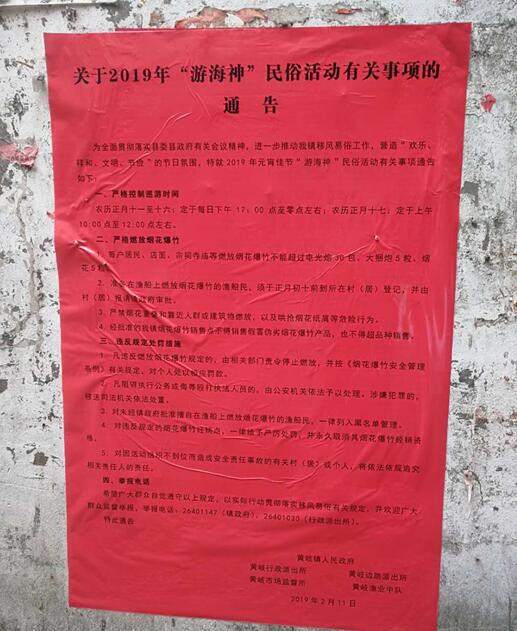 关于2019年“游海神”民俗活动有关事项的
通 告
为全面贯彻落实县委县政府有关会议精神，进一步推动我镇移风易俗工作，营造“欢乐、
祥和、文明、节俭”的节日氛围，特就2019年元宵佳节“游海神”民俗活动有关事项通告
如下：
一、严格控制巡游时间
农历正月十一至十六：定于每日下午17：00点至零点左右；农历正月十七：定于上午
10:00点至12:00点左右。
二、严格燃放烟花爆竹
1、每户居民、店面、宗祠寺庙等燃放烟花爆竹不能超过电光炮30包、大捆炮5粒、烟
花5粒。
2、准备在渔船上燃放烟花爆竹的渔船民，须于正月初十前到所在村（居）登记，并由
村（居）报请镇政府审批。
3、严禁烟花重叠和靠近人群或建筑物燃放，以及哄抢烟花纸屑等危险行为。
4、经批准的我镇烟花爆竹销售点不得销售假冒伪劣烟花爆竹产品，也不得超品种销售。
三、违反规定处罚措施
1、凡违反燃放烟花爆竹规定的，由相关部门责令停止燃放，并按《烟花爆竹安全管理
条例》有关规定，对个人处以相应罚款。
2、凡阻碍执行公务或侮辱殴打执法人员的，由公安机关依法予以处理，涉嫌犯罪的，
移送司法机关依法处置。
3、对未经镇政府批准擅自在渔船上燃放烟花爆竹的渔船民，一律列入黑名单管理。
4、对违反规定的烟花爆竹经销点，一律给予严厉处罚，并永久取消其烟花爆竹经销资
格。
5、对因活动组织不到位而造成安全责任事故的有关村（居）或个人，将依法依规追究
相关责任人的责任。
四、举报电话
希望广大群众自觉遵守以上规定，以实际行动贯彻落实移风易俗有关规定，并欢迎广
大群众监督举报，举报电话：26401147（镇政府），26401030（行政派出所）。
特此通告
黄岐镇人民政府
黄岐行政派出所 黄岐边防派出所
黄岐市场监督所 黄岐渔业中队
2019年2月11日